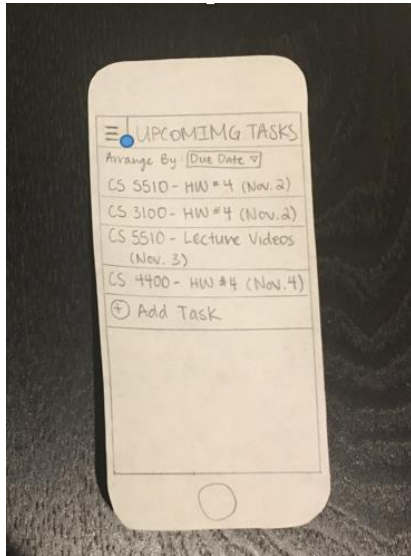 UPCOMIMG TASKS
Arrange By: Due Date
CS 5510 - HW #4 (Nov. 2)
CS 3100 - HW #4 (Nov. 2)
CS 5510 - Lecture Videos
(Nov. 3)
CS 4400 - HW #4 (Nov. 4)
+ Add Task